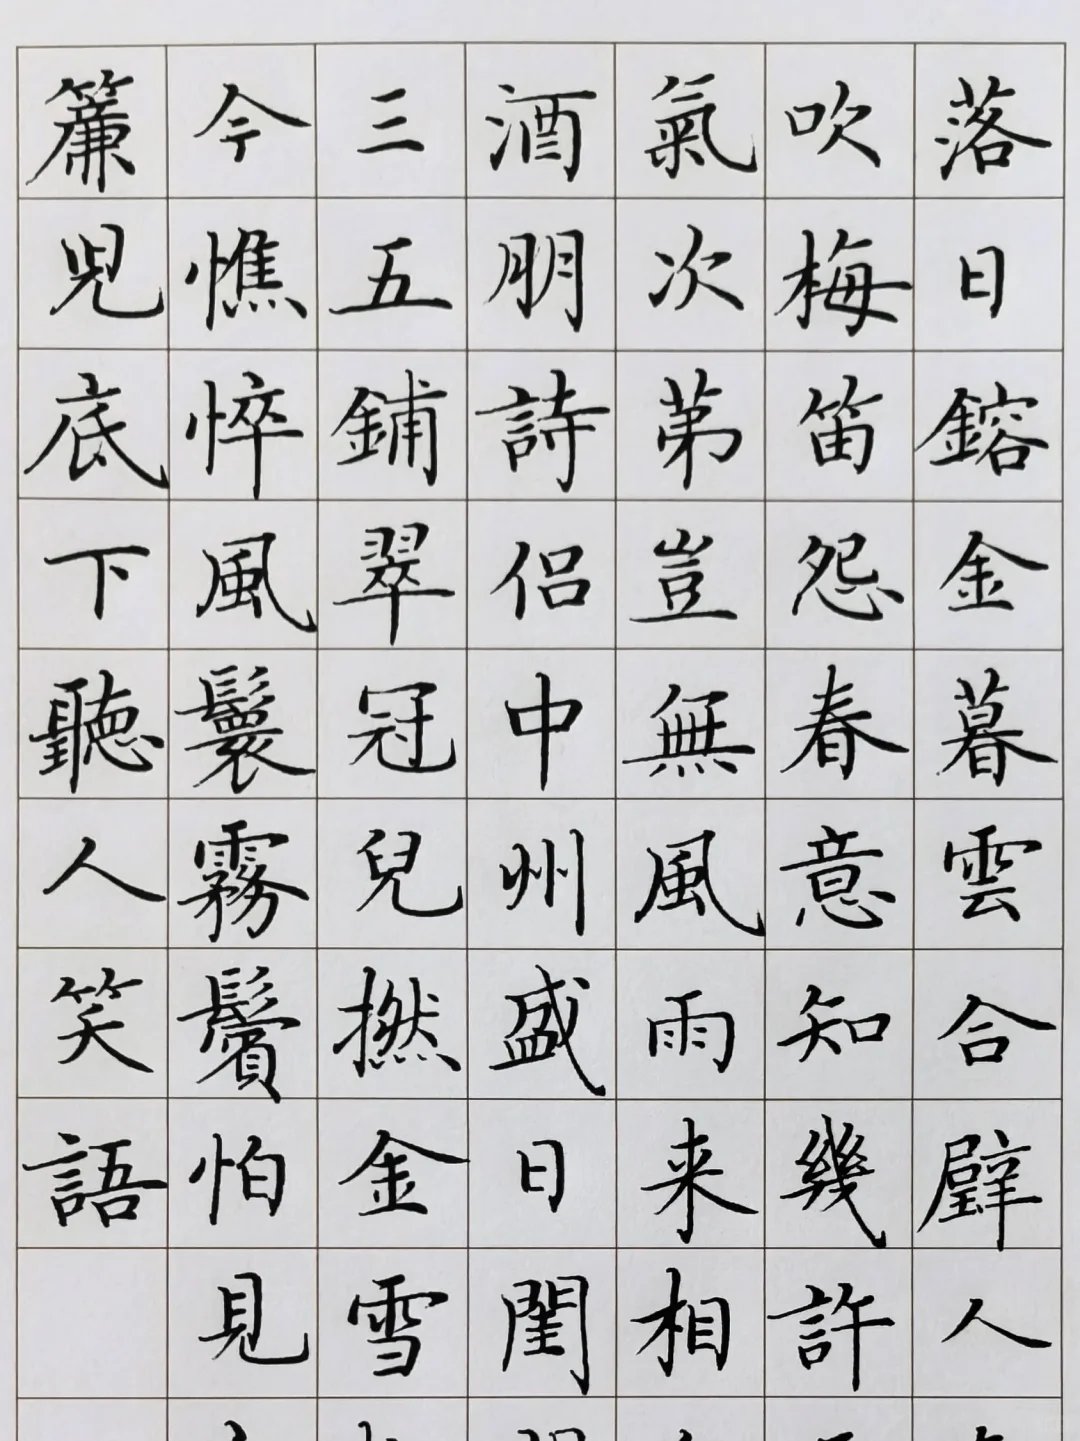 落日鎔金暮雲合璧人
吹梅笛怨春意知幾許
氣次第豈無風雨来相
酒朋詩侣中州盛日閨
三五鋪翠冠兒撚金雪
今憔悴風鬟霧鬢怕見
簾兒底下聽人笑語